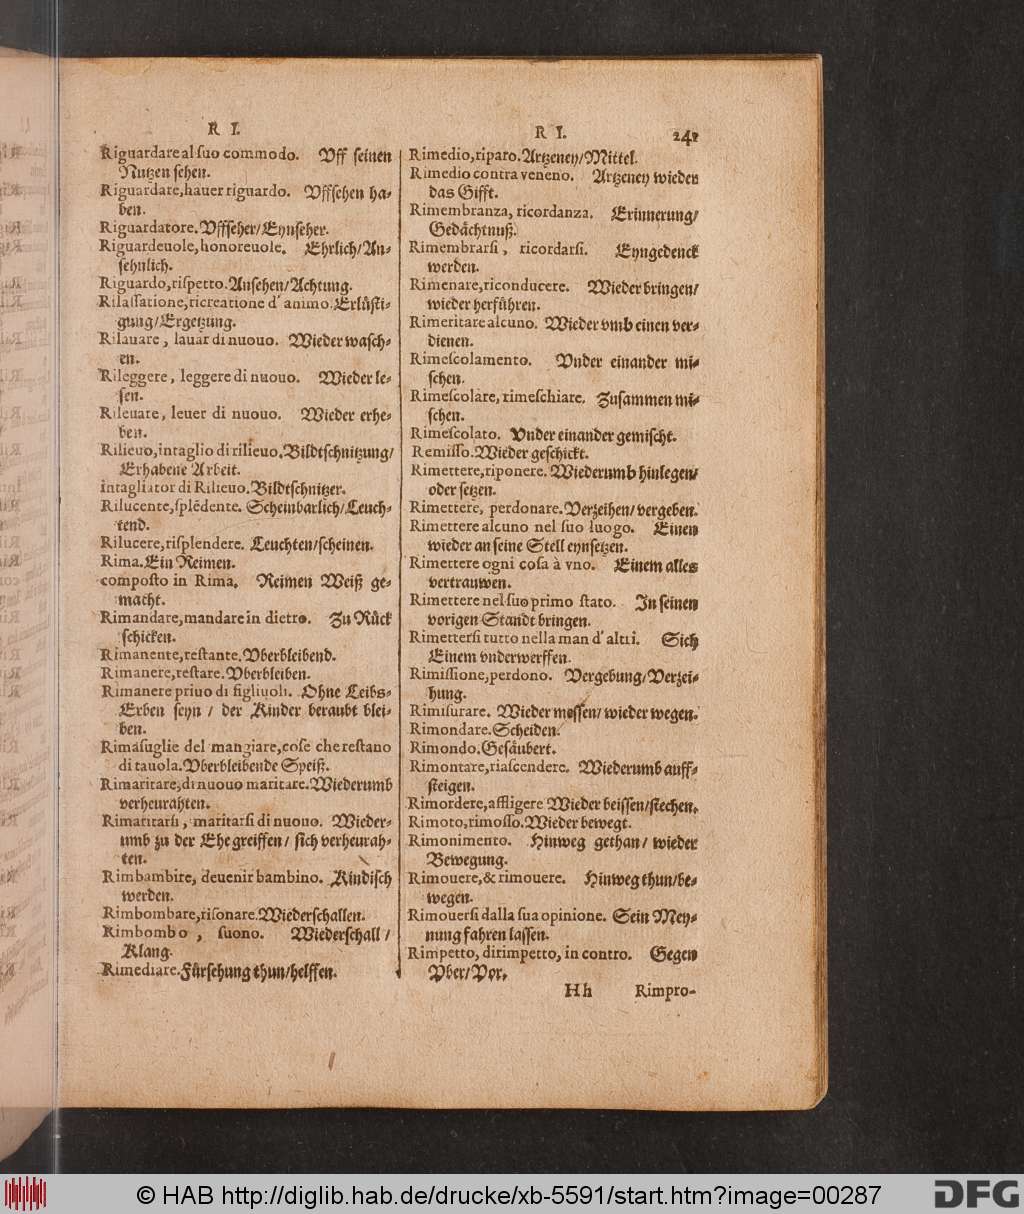 R I.
Riguardare al suo commodo. Vff seinen
Nutzen sehen.
Riguardare, hauer riguardo. Vffsehen ha-
ben.
Riguardatore. Vffseher/Eynseher.
Riguardeuole, honoreuole. Ehrlich/An-
sehnlich.
Riguardo, rispetto. Ansehen/Achtung.
Rilassatione, ricreatione d' animo. Erlüsti-
gung/Ergetzung.
Rilauare, lauar di nuouo. Wieder wasch-
en.
Rileggere, leggere di nuouo. Wieder le-
sen.
Rileuare, leuer di nuouo. Wieder erhe-
ben.
Rilieuo, intaglio di rilieuo. Bildtschnitzung/
Erhabene Arbeit.
intagliator di Rilieuo. Bildtschnitzer.
Rilucente, splēdente. Scheinbarlich/Leuch-
tend.
Rilucere, risplendere. Leuchten/scheinen.
Rima. Ein Reimen.
composto in Rima. Reimen Weiß ge-
macht.
Rimandare, mandare in dietro. Zu Rück
schicken.
Rimanente, restante. Vberbleibend.
Rimanere, restare. Vberbleiben.
Rimanere priuo di figliuoli. Ohne Leibs-
Erben seyn / der Kinder beraubt blei-
ben.
Rimasuglie del mangiare, cose che restano
di tauola. Vberbleibende Speiß.
Rimaritare, di nuouo maritare. Wiederumb
verheurahten.
Rimaritarsi, maritarsi di nuouo. Wieder-
umb zu der Ehe greiffen/ sich verheurah-
ten.
Rimbambire, deuenir bambino. Kindisch
werden.
Rimbombare, risonare. Wiederschallen.
Rimbombo, suono. Wiederschall /
Klang.
Rimediare. Fürsehung thun/helffen.
R I. 241
Rimedio, riparo. Artzeney/Mittel.
Rimedio contra veneno. Artzeney wieder
das Gifft.
Rimembranza, ricordanza. Erinnerung/
Gedächtnuß.
Rimembrarsi, ricordarsi. Eyngedenck
werden.
Rimenare, riconducere. Wieder bringen/
wieder herführen.
Rimeritare alcuno. Wieder vmb einen ver-
dienen.
Rimescolamento. Vnder einander mi-
schen.
Rimescolare, rimeschiare. Zusammen mi-
schen.
Rimescolato. Vnder einander gemischt.
Remisso. Wieder geschickt.
Rimettere, riponere. Wiederumb hinlegen/
oder setzen.
Rimettere, perdonare. Verzeihen/vergeben.
Rimettere alcuno nel suo luogo. Einen
wieder an seine Stell eynsetzen.
Rimettere ogni cosa à vno. Einem alles
vertrauwen.
Rimettere nel suo primo stato. In seinen
vorigen Standt bringen.
Rimettersi tutto nella man d' altri. Sich
Einem vnderwerffen.
Rimissione, perdono. Vergebung/Verzei-
hung.
Rimisurare. Wieder messen/wieder wegen.
Rimondare. Scheiden.
Rimondo. Gesäubert.
Rimontare, riascendere. Wiederumb auff-
steigen.
Rimordere, affligere Wieder beissen/stechen.
Rimoto, rimosso. Wieder bewegt.
Rimonimento. Hinweg gethan/ wieder
Bewegung.
Rimouere, & rimouere. Hinweg thun/be-
wegen.
Rimouersi dalla sua opinione. Sein Mey-
nung fahren lassen.
Rimpetto, dirimpetto, in contro. Gegen
Vber/Vor.
Hh Rimpro-
© HAB http://diglib.hab.de/drucke/xb-5591/start.htm?image=00287
DFG